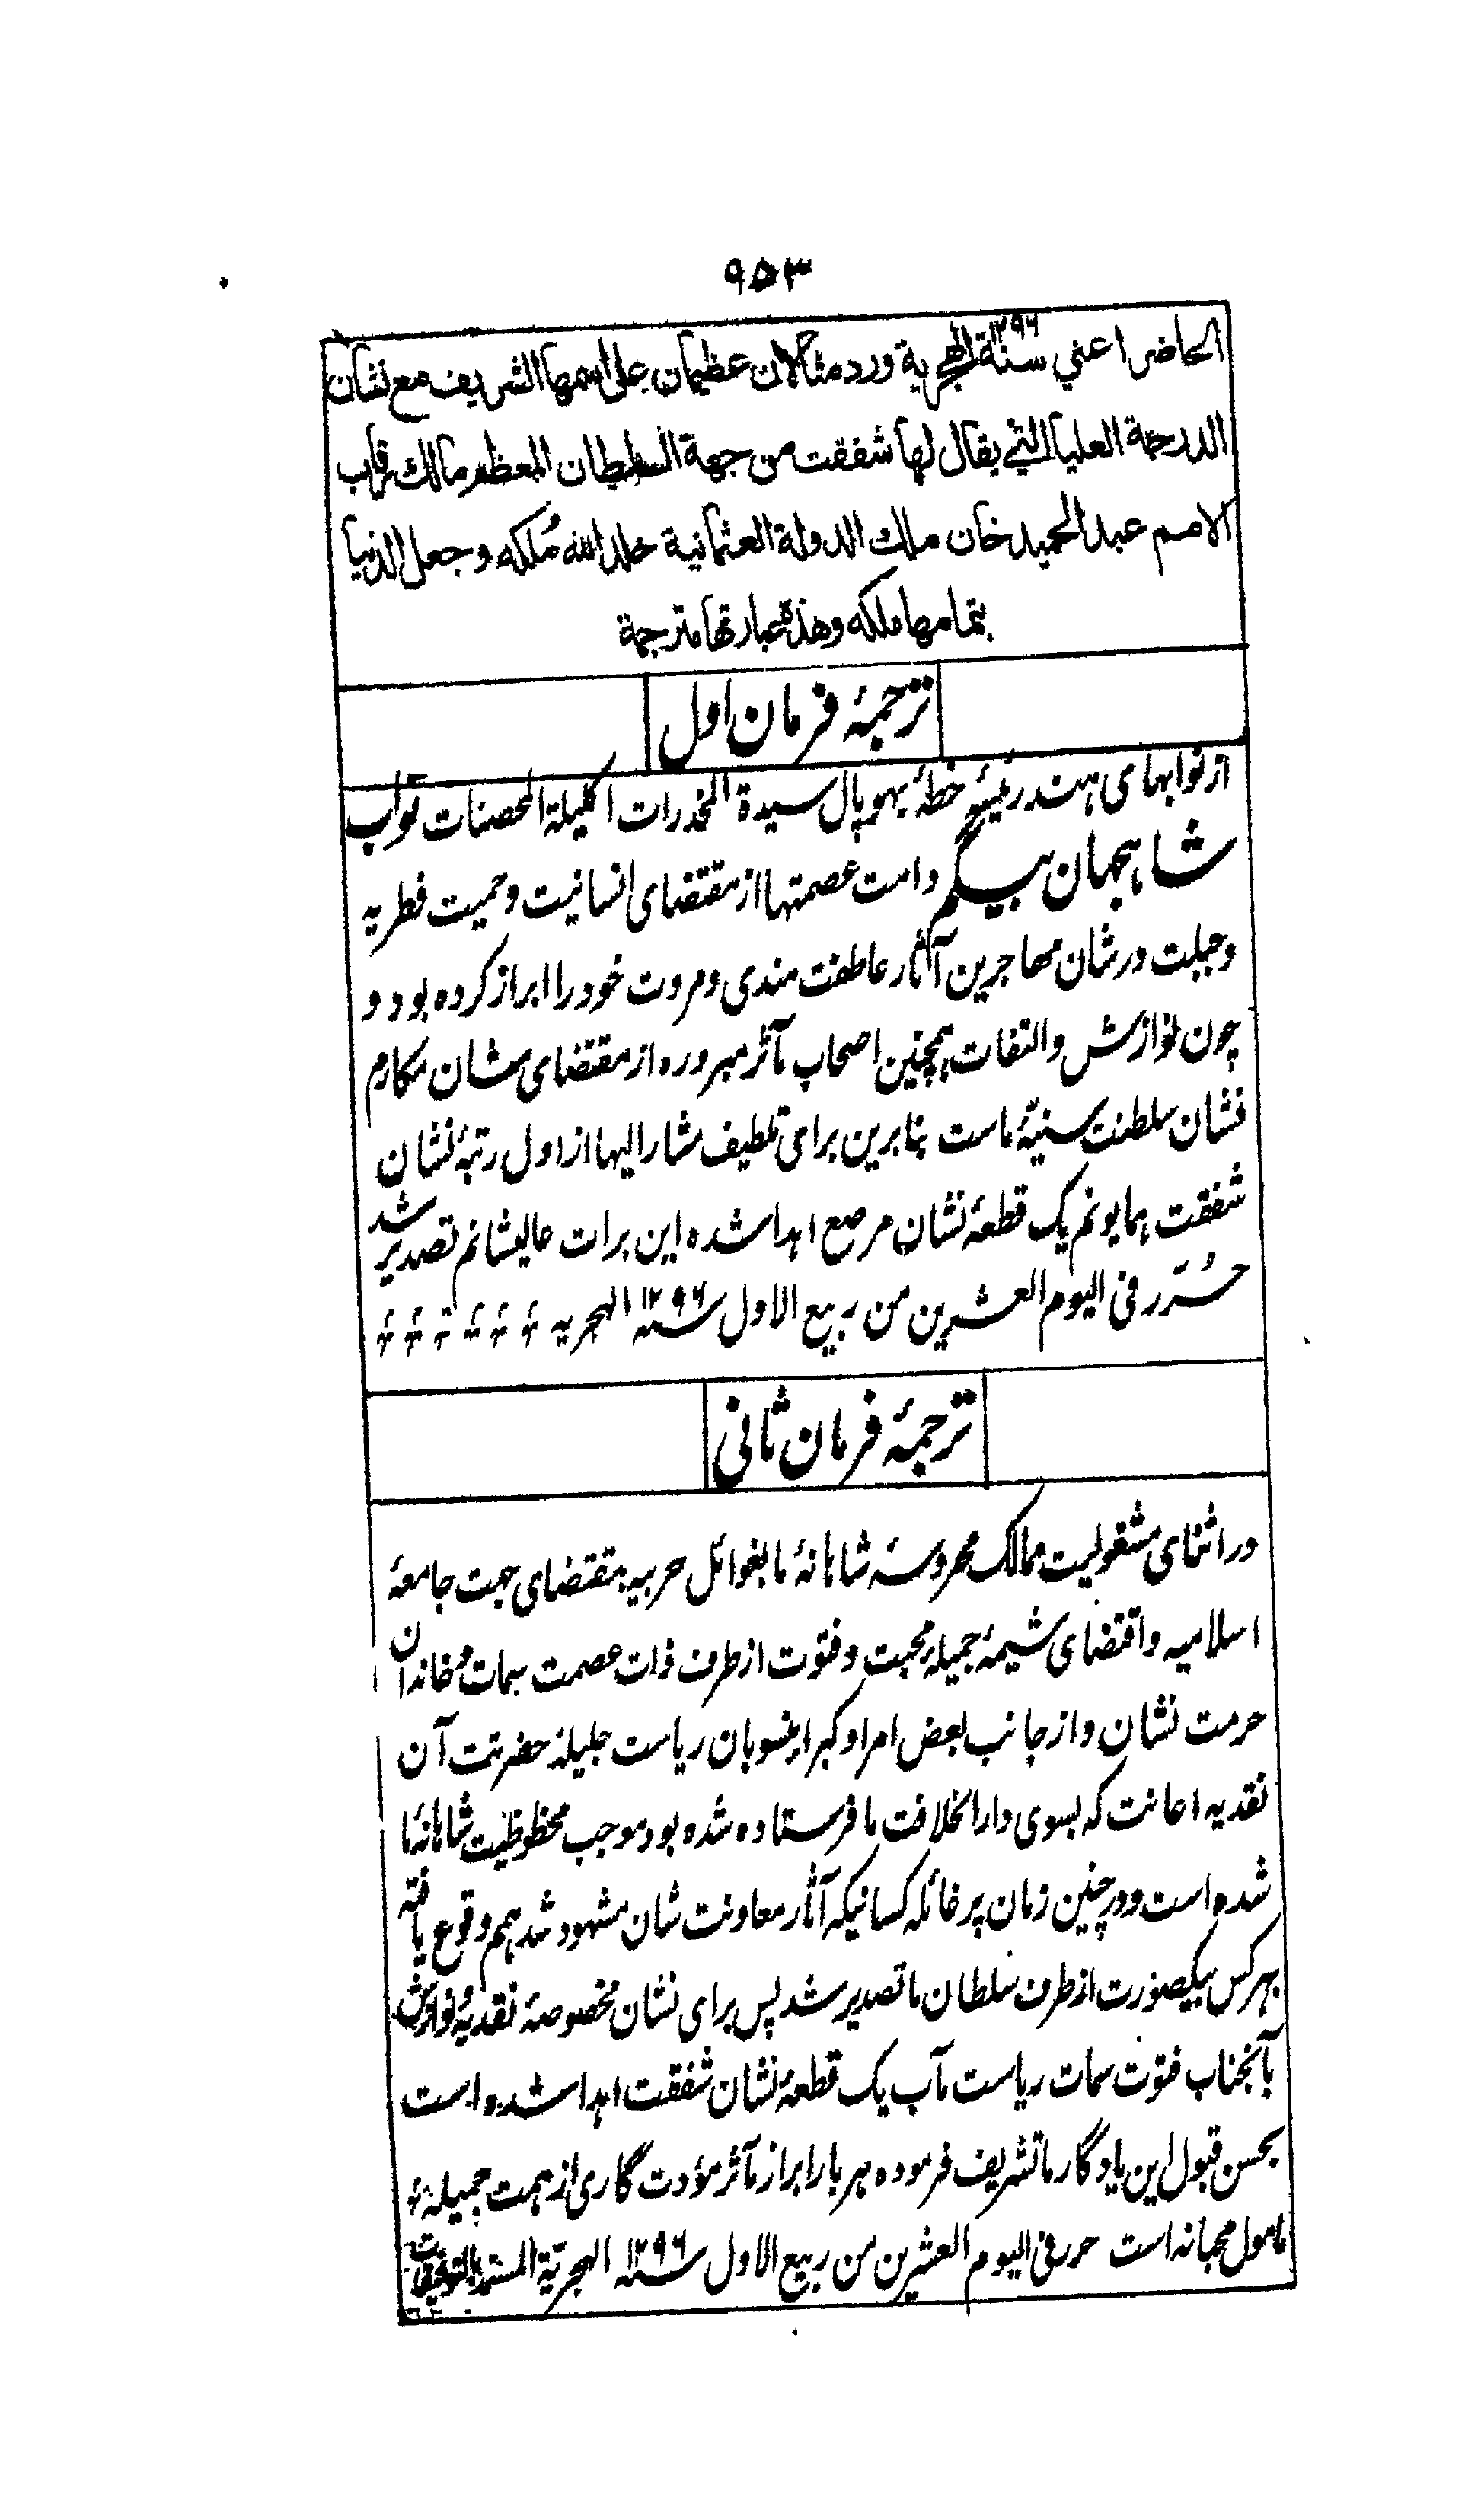 ٩٥٣
الحاضر اعني سنة ١٢٩٦ الهجرية ورد مثالان عظيمان على اسمها الشريف مع نشان
الدرجة العليا التي يقال لها شفقت من جهة السلطان المعظم مالك رقاب
الامم عبد الحميد خان ملك الدولة العثمانية خلد الله مُلكه وجعل الدنيا
بتمامها ملكه وهذه عبارتها مترجمة
ترجمۂ فرمان اول
از نوابهای هند رئیسۂ خطۂ بهوپال سیدة المخدرات اکلیلة المحصنات نواب
شاهجهان بیگم دامت عصمتها از مقتضای انسانیت وحمیت فطریه
وجبلت درشان مهاجرین آثار عاطفت مندی ومروت خود را ابراز کرده بود و
چون نوازش والتفات بهمچنین اصحاب مآثر مبروره از مقتضای شان مکارم
نشان سلطنت سنیۂ ماست بنابرین برای تلطیف مشار الیها از اول رتبۂ نشان
شفقت همایونم یک قطعۂ نشان مرصع اهدا شده این برات عالیشانم تصدیر شد
حُرّر فی الیوم العشرین من ربیع الاول سنه ١٢٩٦ الهجریه
ترجمۂ فرمان ثانی
در اثنای مشغولیت ممالک محروسۂ شاهانۂ ما بغوائل حربیه بمقتضای جهت جامعۂ
اسلامیه واقتضای شیمۂ جمیلۂ محبت وفتوت از طرف ذات عصمت سمات خاندان
حرمت نشان واز جانب بعض امرا وکبرا منسوبان ریاست جلیلۂ حضرتت آن
نقدیه اعانت که بسوی دار الخلافت ما فرستاده شده بود موجب محظوظیت شاهانۂ ما
شده است ودر چنین زمان پر غائله کسانیکه آثار معاونت شان مشهود شد هم وقوع یافته
بهر کس بیکصورت از طرف سلطان ما تصدیر شد پس برای نشان مخصوصۂ نقدیۂ نوازش
بآنجناب فتوت سمات ریاست مآب یک قطعۂ نشان شفقت اهدا شده است
بحسن قبول این یادگار ما تشریف فرموده هر بار ابراز مآثر مؤدت گاری از همت جمیله
مامول محبانه است حرر فی الیوم العشرین من ربیع الاول سنه ١٢٩٦ الهجریة